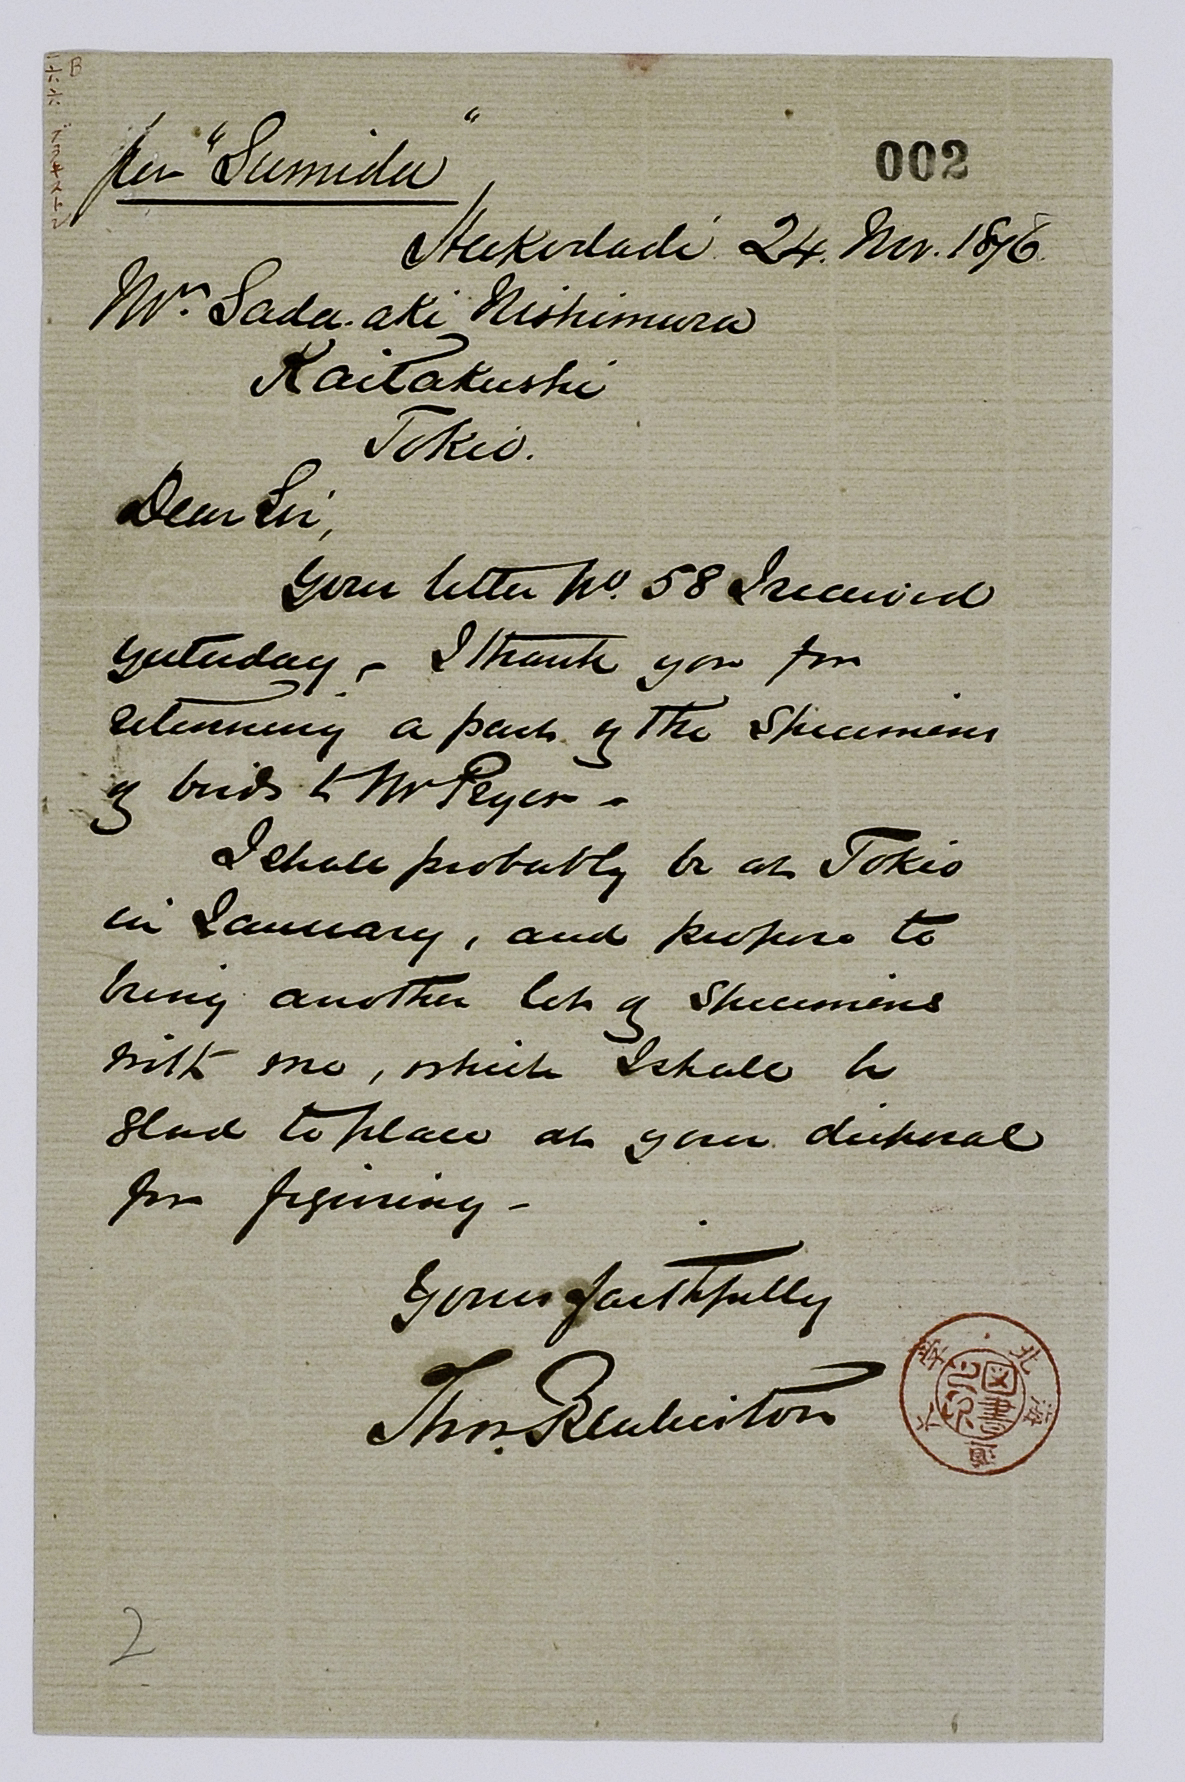 per "Sumida"
002
Hakodadi 24. Nov. 1876
Mr. Sada-aki Nishimura
Kaitakushi
Tokio.
Dear Sir,
Your letter No. 58 I received
yesterday - I thank you for
returning a part of the specimens
of birds to Mr Pryer -
I shall probably be at Tokio
in January, and propose to
bring another lot of specimens
with me, which I shall be
glad to place at your disposal
for figuring -
Yours faithfully
Thos. Blakiston
図書之印
2